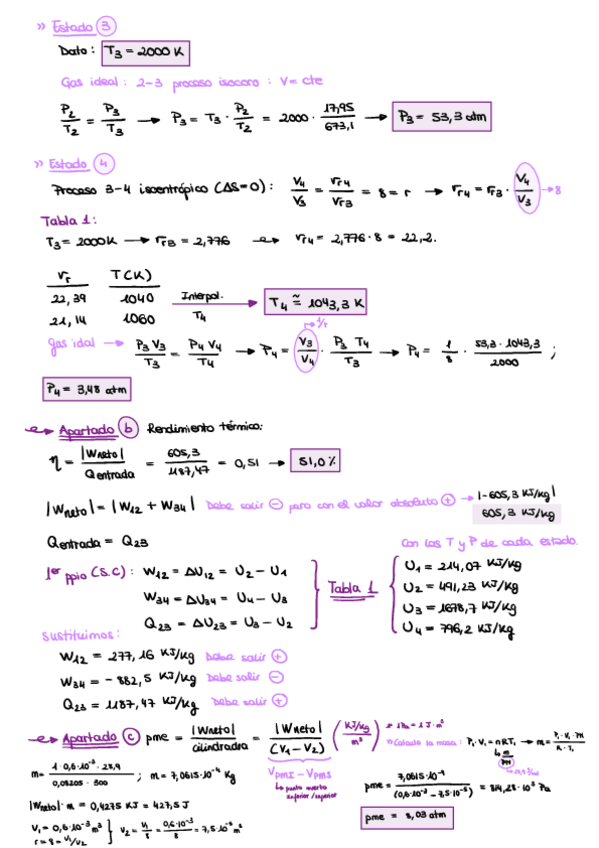 » Estado 3
Dato: T3 = 2000 K
Gas ideal: 2-3 proceso isocoro: V = cte
P2/T2 = P3/T3 → P3 = T3 · P2/T2 = 2000 · 17,95/673,1 → P3 = 53,3 atm
» Estado 4
Proceso 3-4 isoentrópico (ΔS=0): V4/V3 = Vr4/Vr3 = 8 = r → Vr4 = Vr3 · V4/V3 → 8
Tabla 1:
T3 = 2000 K → Vr3 = 2,776 → Vr4 = 2,776 · 8 = 22,2.
Vr T(K)
22,39 1040
21,14 1060
Interpol. T4 → T4 ≅ 1043,3 K
Gas idal → P3 V3/T3 = P4 V4/T4 → P4 = V3/V4 · P3 T4/T3 → P4 = 1/8 · 53,3 · 1043,3/2000 ;
1/r
P4 = 3,48 atm
Apartado b Rendimiento térmico:
η = |Wneto|/Qentrada = 605,3/1187,47 = 0,51 → 51,0 %
|Wneto| = |W12 + W34| Debe salir ⊖ pero con el valor absoluto ⊕ → |-605,3 KJ/kg|
605,3 KJ/kg
Qentrada = Q23
Con las T y P de cada estado.
1er ppio (S.C): W12 = ΔU12 = U2 - U1
W34 = ΔU34 = U4 - U3
Q23 = ΔU23 = U3 - U2
Tabla 1
U1 = 214,07 KJ/kg
U2 = 491,23 KJ/kg
U3 = 1678,7 KJ/kg
U4 = 796,2 KJ/kg
Sustituimos:
W12 = 277,16 KJ/kg Debe salir ⊕
W34 = -882,5 KJ/kg Debe salir ⊖
Q23 = 1187,47 KJ/kg Debe salir ⊕
Apartado c pme = |Wneto|/cilindrada = |Wneto|/(V1-V2) (KJ/kg/m³) * 1Pa = 1 J · m³
» Calculo la masa: P1 · V1 = nRT1 → m = P1 · V1 · PM/R · T1
m/PM
VPMI - VPMS
punto muerto inferior/superior
m = 1 · 0,6·10⁻³ · 28,9/0,08205 · 300 ; m = 7,0615·10⁻⁴ Kg
pme = 7,0615·10⁻¹/(0,6·10⁻³ - 7,5·10⁻⁵) = 814,28·10³ Pa
|Wneto| · m = 0,4275 KJ = 427,5 J
pme = 8,03 atm
V1 = 0,6·10⁻³ m³
r = 8 = V1/V2
V2 = V1/8 = 0,6·10⁻³/8 = 7,5·10⁻⁵ m³